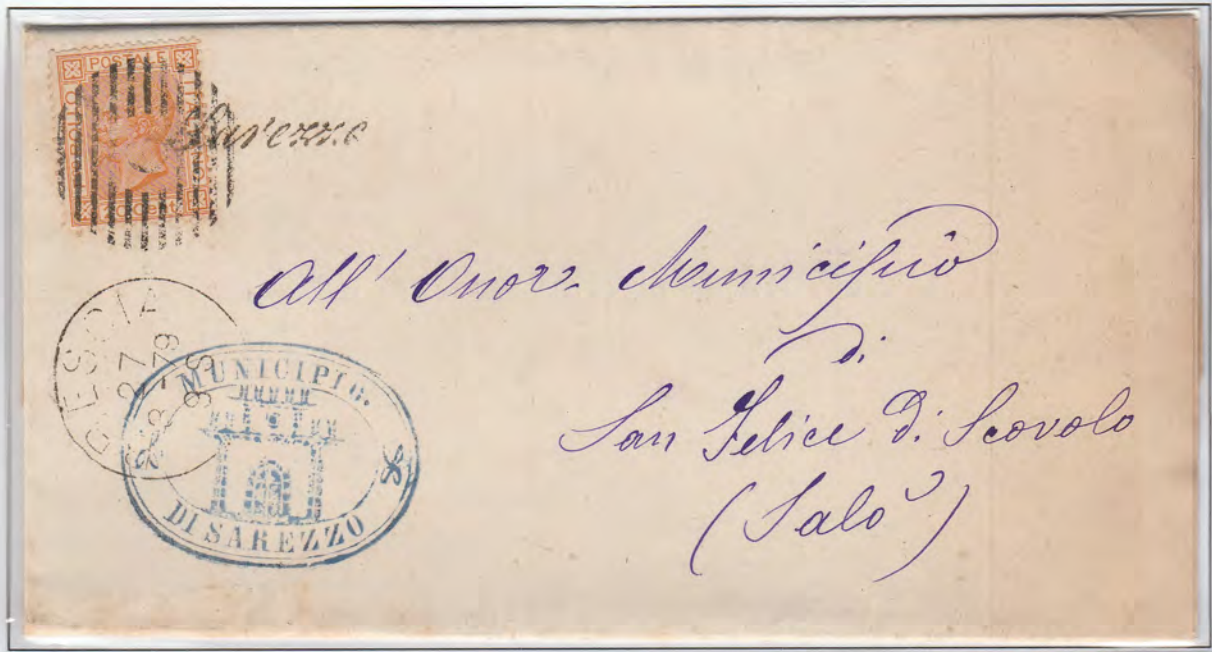 POSTALE
Sarezzo
All' Onor. Municipio
di
San Felice di Scovolo
(Salò)
BRESCIA
27
8-79
9 S
MUNICIPIO.
DI SAREZZO